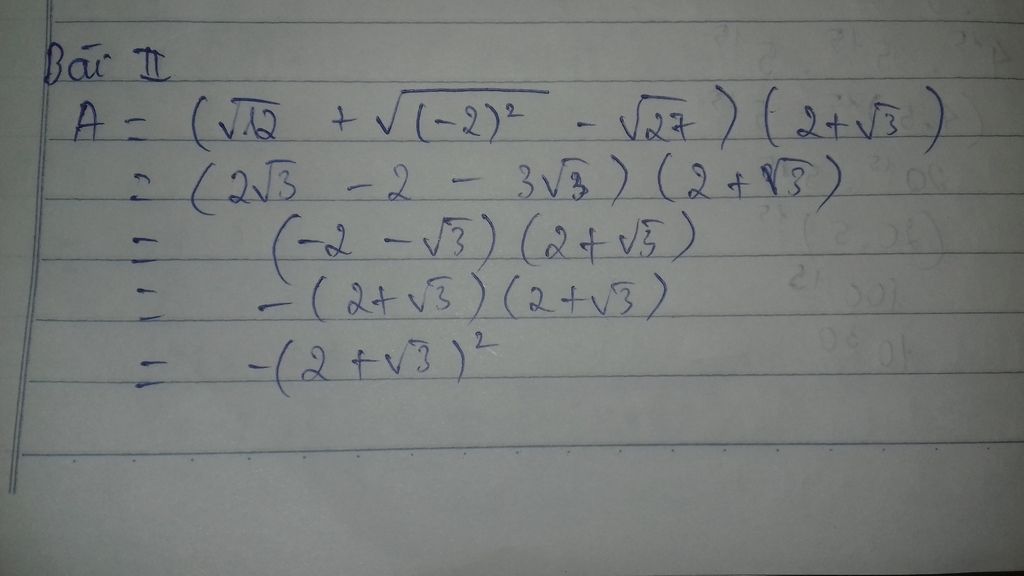 Bài II
A = (√12 + √(-2)² - √27) (2+√3)
= (2√3 - 2 - 3√3) (2+√3)
= (-2 - √3) (2+√3)
= -(2+√3) (2+√3)
= -(2+√3)²